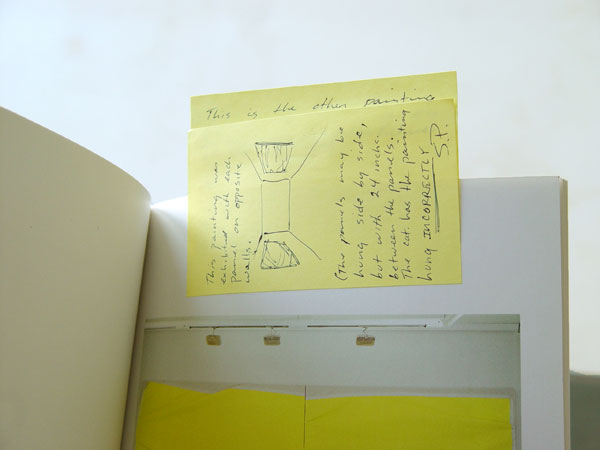 This is the other painting
This painting was
exhibited with each
panel on opposite
walls.
(The panels may be
hung side by side,
but with 24 inchs.
between the panels.
The cat. has the painting
hung INCORRECTLY
S.P.